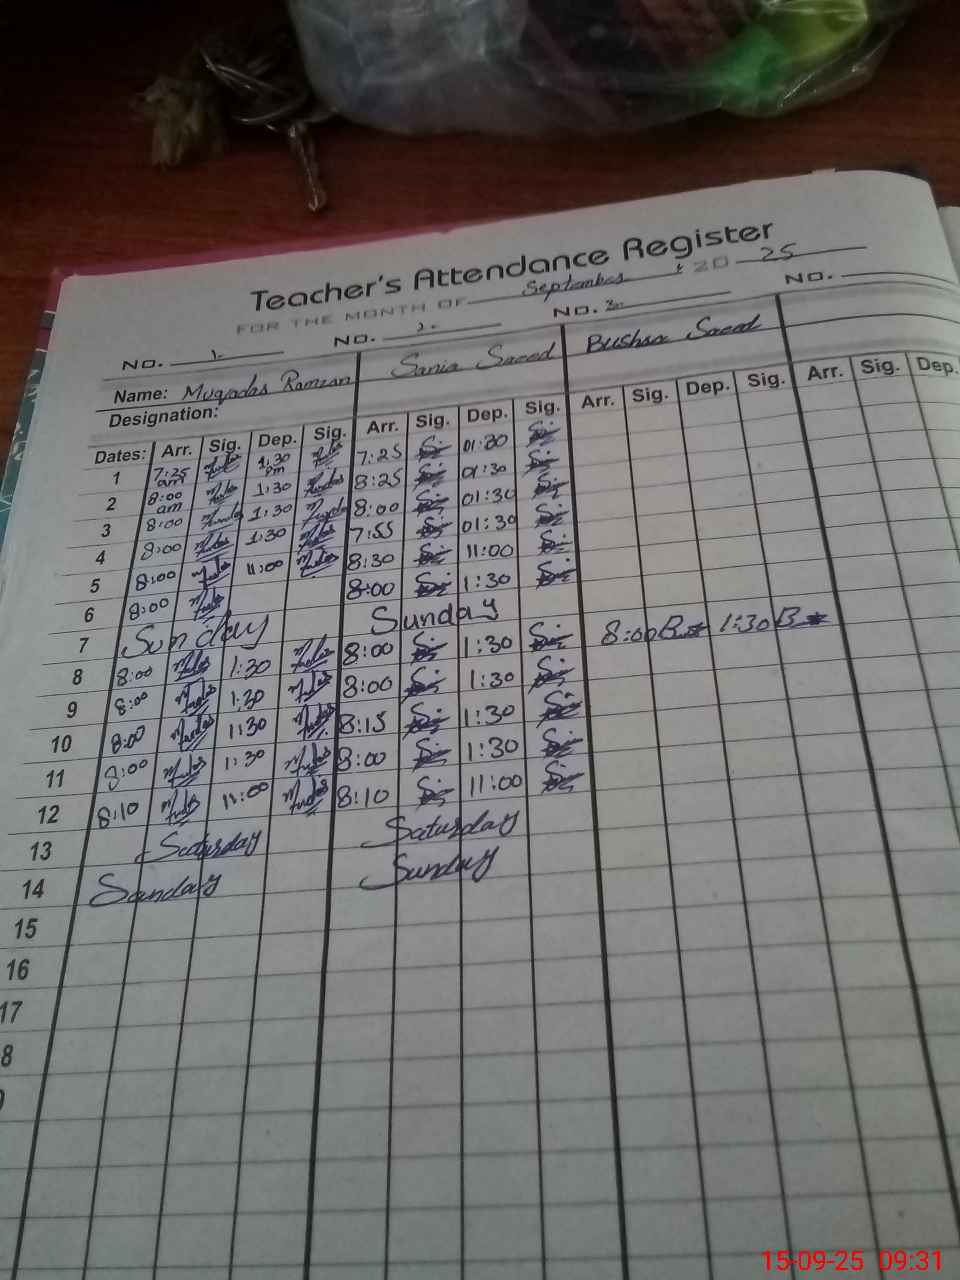 Teacher's Attendance Register
FOR THE MONTH OF September 20 25
NO. 1. NO. 2. NO. 3. NO.
Name: Muqadas Ramzan Sania Saeed Bushra Saeed
Designation:
Dates: Arr. Sig. Dep. Sig. Arr. Sig. Dep. Sig. Arr. Sig. Dep. Sig. Arr. Sig. Dep.
1 7:25 am 1:30 pm 7:25 01:30
2 8:00 am 1:30 8:25 01:30
3 8:00 1:30 8:00 01:30
4 8:00 1:30 7:55 01:30
5 8:00 11:00 8:30 11:00
6 8:00 8:00 1:30
7 Sunday Sunday
8 8:00 1:30 8:00 1:30 8:00 1:30
9 8:00 1:30 8:00 1:30
10 8:00 1:30 8:15 1:30
11 8:00 1:30 8:00 1:30
12 8:10 11:00 8:10 11:00
13 Saturday Saturday
14 Sunday Sunday
15
16
17
8
15-09-25 09:31